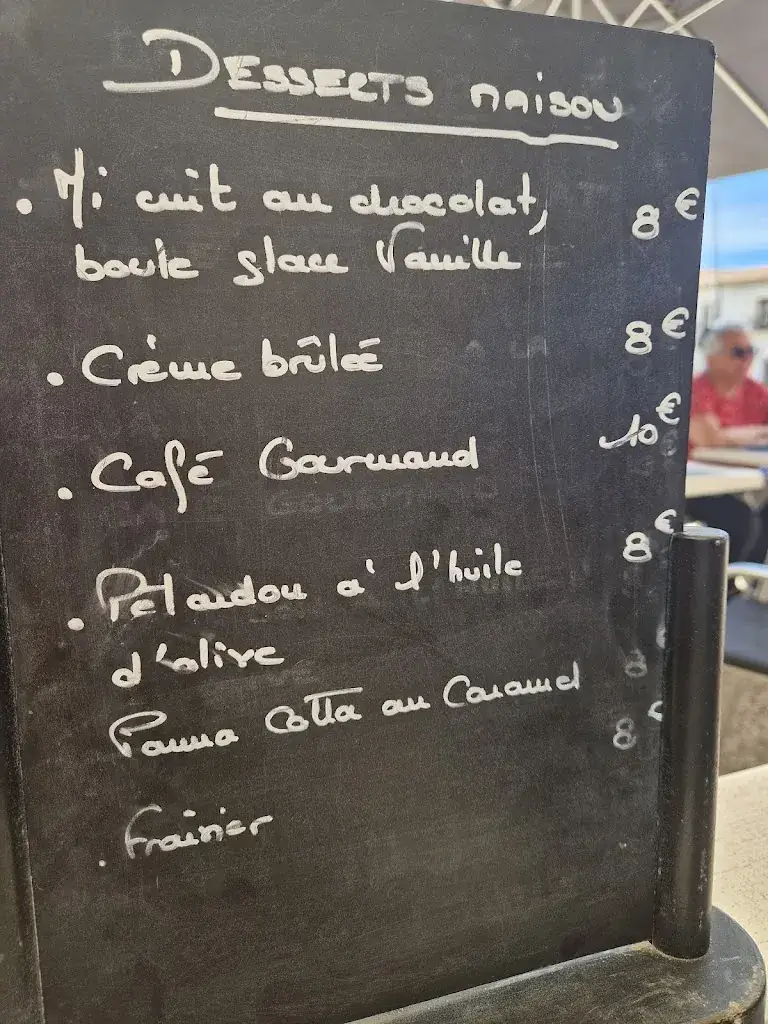 Desserts maison
. Mi cuit au chocolat, 8€
boule glace Vanille
. Crème brûlée 8€
. Café Gourmand 10€
. Pélardou à l'huile 8€
d'olive
Panna Cotta au Caramel 8
8€
. Fraisier